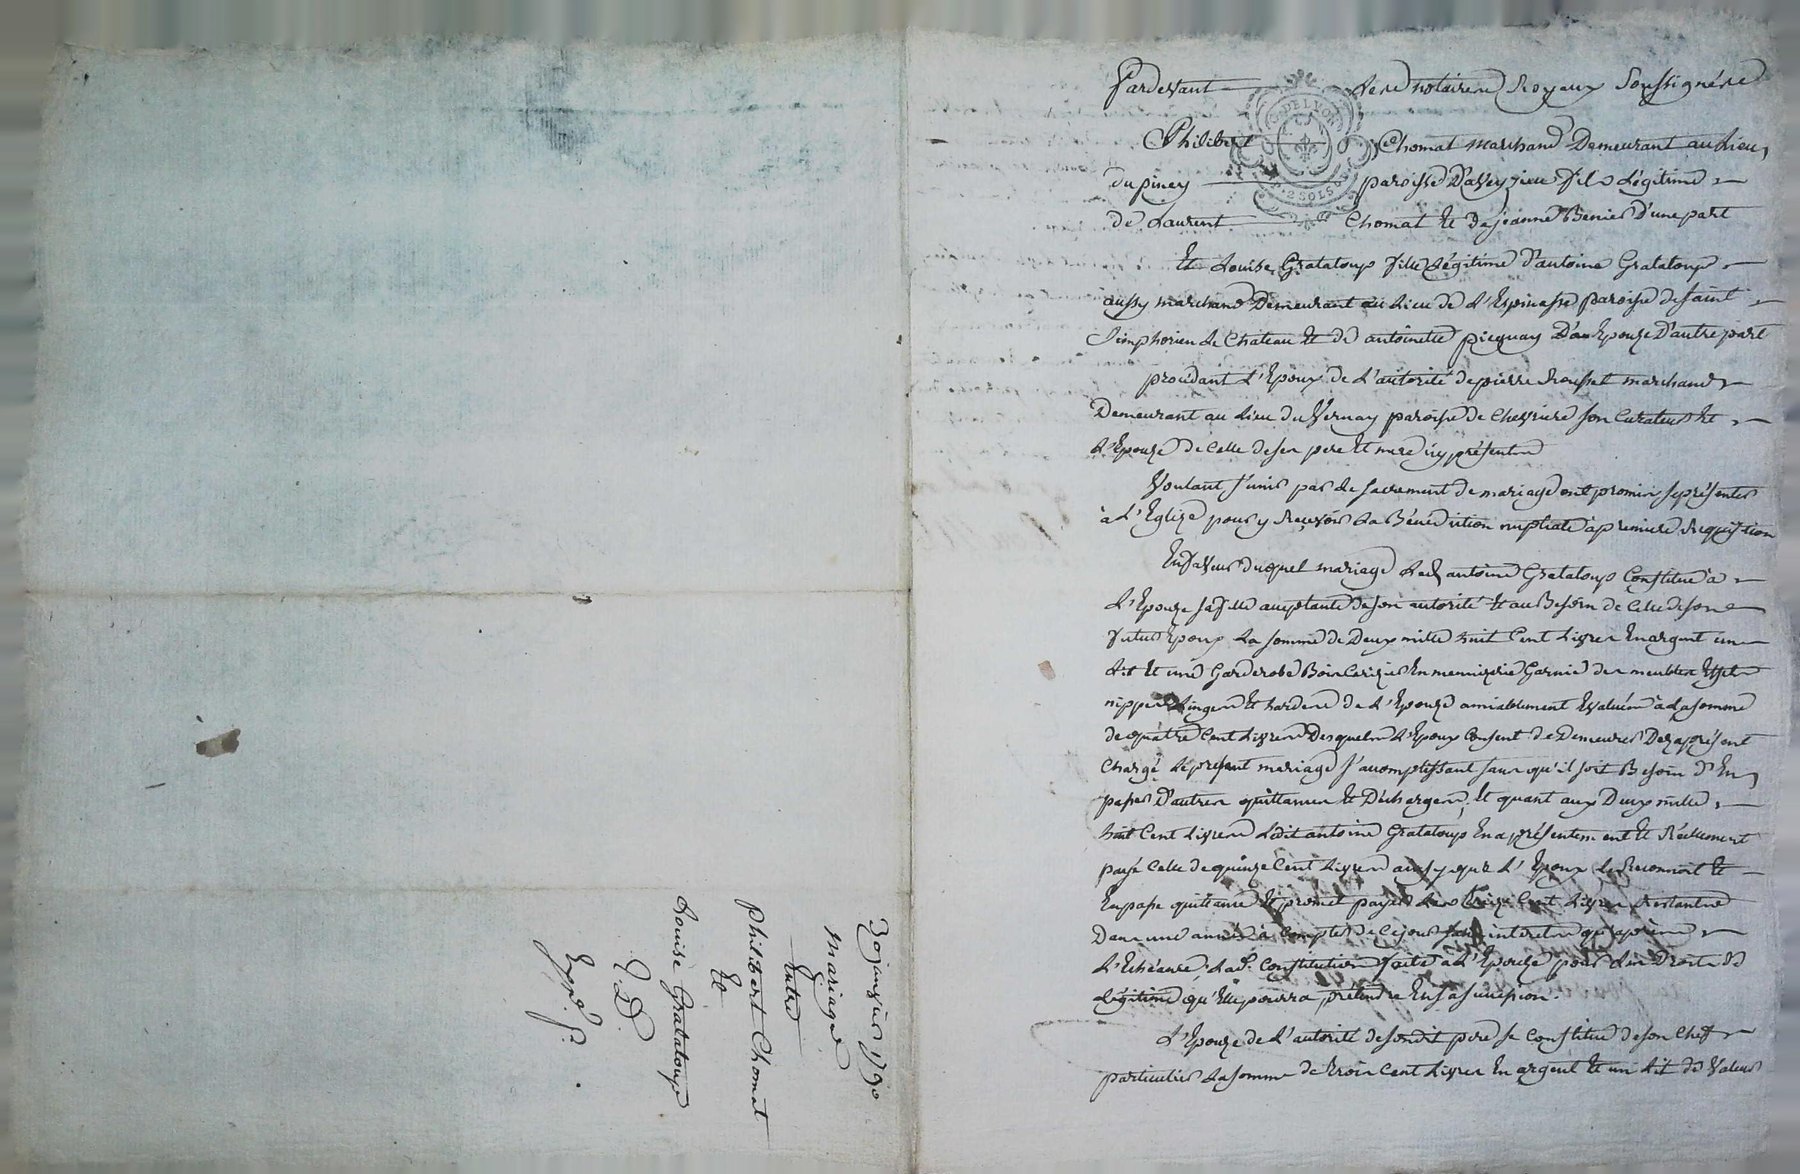 Pardevant les notaires Royaux Soussignés
Philibert Chomat marchand Demeurant au lieu
du piney paroisse D'aveyzieu fils légitime
de Laurent Chomat et de jeanne Benier D'une part
Et Louise Grataloup fille légitime d'antoine Grataloup
aussy marchand Demeurant au lieu de L'Espinasse paroisse de saint
Simphorien le Chateau et de antoinette picquay Son Epouze D'autre part
procédant L'Epoux de L'autorité de pierre Rousset marchand
Demeurant au lieu du Vernay paroisse de Chevriere son Curateur Et
L'Epouze de Celle de ses pere Et mere icy présents
Voulant s'unir par le sacrement de mariage ont promis se présenter
à L'Eglize pour y Recevoir la Bénédiction nuptiale à premiere Requisition
En faveur duquel mariage led antoine Grataloup Constitue à
L'Epouze sa fille acceptante de son autorité Et au Besoin de Celle de son
futur Epoux La somme de Deux mille huit Cent Livres En argent un
Lit Et une Garderobe Bois Cerizier En menuizerie Garnie des meubles Effets
nippes Linges Et hardes de L'Epouze amiablement Evalués à la somme
de quatre Cent Livres Desquels L'Epoux Consent de Demeurer Dez à présent
Chargé le présent mariage s'accomplissant sans qu'il soit Besoin d'En
passer D'autres quittances Et Décharges, Et quant aux Deux mille
huit Cent Livres Ledit antoine Grataloup En a présentement Et Réellement
payé Celle de quinze Cent Livres ainsy que L'Epoux Le Reconnoit Et
En passe quittance Et promet payer Les treize Cent Livres Restantes
Dans une année à Compter de Ce jour sans interets qu'après
L'Echéance. Lad. Constitution faite à L'Epouze pour Les Droits de
Légitime qu'Elle pourra prétendre En sa succession.
L'Epouze de L'autorité de sondit pere se Constitue de son Chef
particulier la somme de trois Cent Livres En argent Et un Lit de Valeur
janvier 1790
Mariage
Entre
Philibert Chomat
Et
Louise Grataloup
Expd.